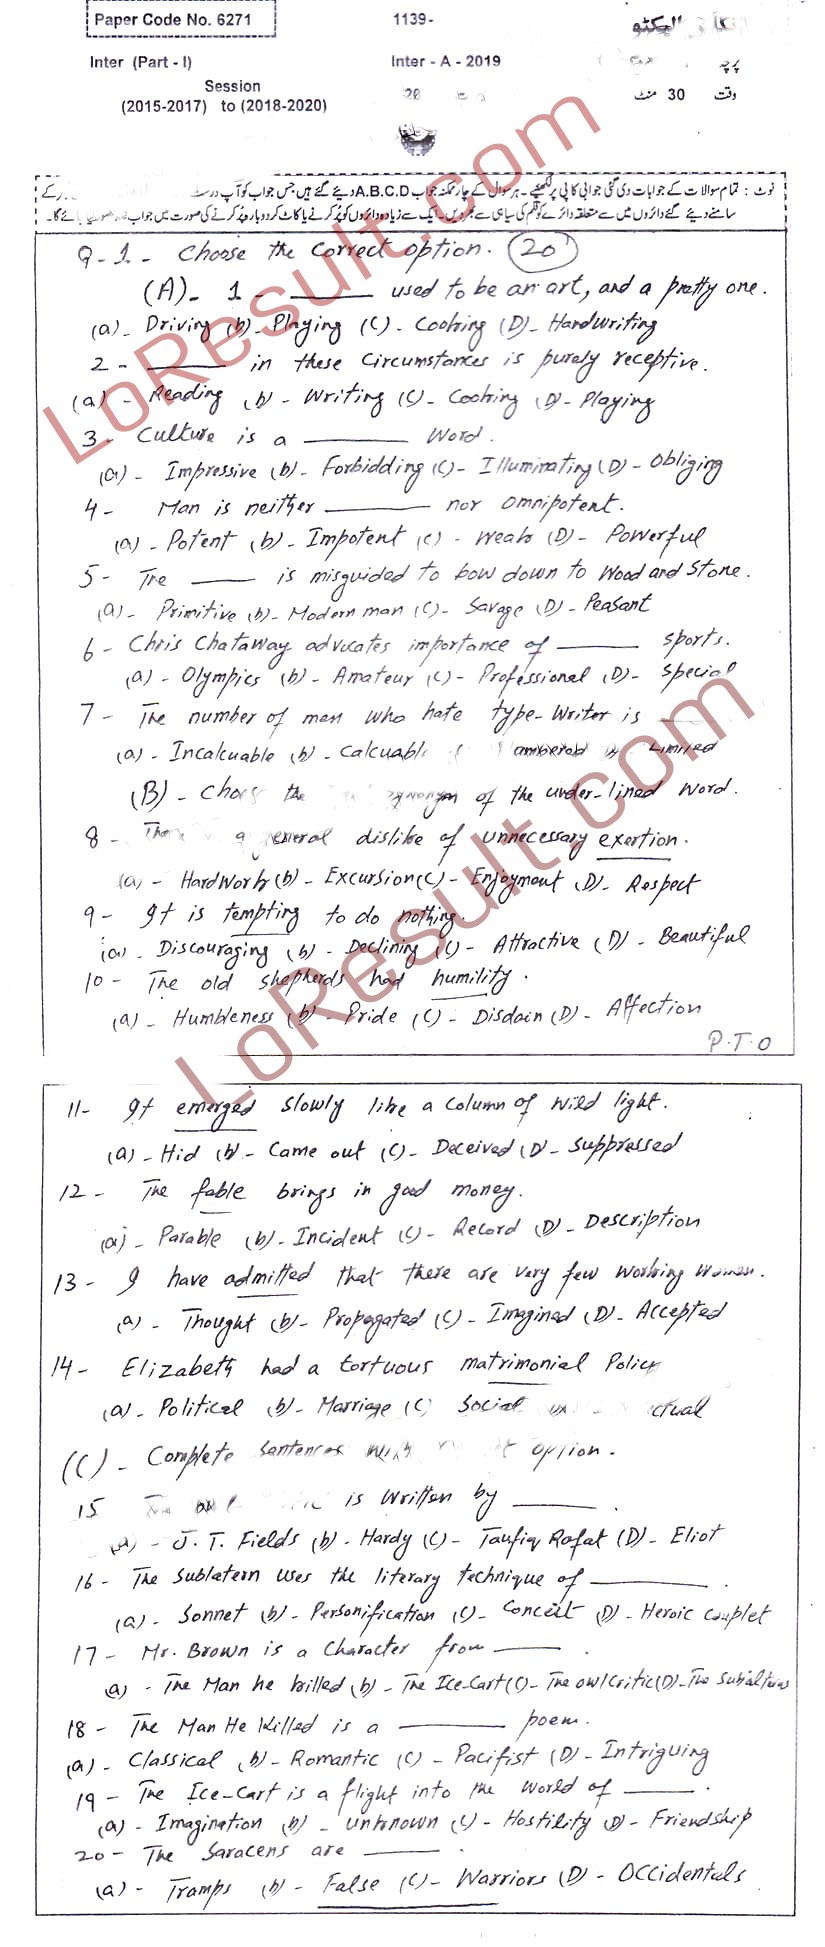 Paper Code No. 6271
1139-
Inter (Part - I)
Inter - A - 2019
Session
(2015-2017) to (2018-2020)
وقت 30 منٹ
نوٹ : تمام سوالات کے جوابات دی گئی جوابی کاپی پر لکھیئے ۔ ہر سوال کے چار ممکنہ جواب A.B.C.D دیئے گئے ہیں جس جواب کو آپ درست
سامنے دیئے گئے دائروں میں سے متعلقہ دائرے کو قلم کی سیاہی سے بھر دیں۔ ایک سے زیادہ دائروں کو پُر کرنے یا کاٹ کر دوبارہ پُر کرنے کی صورت میں جواب غلط تصور کیا جائے گا۔
Q-1- Choose the Correct option. 20
(A)- 1- ______ used to be an art, and a pretty one.
(a)- Driving (b)- Playing (C)- Cooking (D)- Handwriting
2- ______ in these Circumstances is purely receptive.
(a)- Reading (b)- Writing (C)- Cooking (D)- Playing
3- Culture is a ______ Word.
(a)- Impressive (b)- Forbidding (C)- Illuminating (D)- Obliging
4- Man is neither ______ nor omnipotent.
(a)- Potent (b)- Impotent (c)- Weak (D)- Powerful
5- The ______ is misguided to bow down to Wood and Stone.
(a)- Primitive (b)- Modern man (C)- Savage (D)- Peasant
6- Chris Chataway advocates importance of ______ sports.
(a)- Olympics (b)- Amateur (c)- Professional (D)- Special
7- The number of men who hate type-writer is ______
(a)- Incalcuable (b)- Calcuabl Numbered Limited
(B)- Choos the synonym of the under-lined Word.
8- There a general dislike of unnecessary exertion.
(a)- Hardwork (b)- Excursion (C)- Enjoyment (D)- Respect
9- It is tempting to do nothing.
(a)- Discouraging (b)- Declining (C)- Attractive (D)- Beautiful
10- The old shepherds had humility.
(a)- Humbleness (b)- Pride (C)- Disdain (D)- Affection
P.T.O
11- It emerged slowly like a column of Wild light.
(a)- Hid (b)- Came out (C)- Deceived (D)- Suppressed
12- The fable brings in good money.
(a)- Parable (b)- Incident (C)- Record (D)- Description
13- I have admitted that there are very few working women.
(a)- Thought (b)- Propagated (C)- Imagined (D)- Accepted
14- Elizabeth had a tortuous matrimonial Policy
(a)- Political (b)- Marriage (C) Social ctual
(C)- Complete Sentences with option.
15 is written by ______.
(a)- J. T. Fields (b)- Hardy (C)- Taufiq Rafat (D)- Eliot
16- The Sublatern uses the literary technique of ______.
(a)- Sonnet (b)- Personification (C)- Conceit (D)- Heroic Couplet
17- Mr. Brown is a Character from ______.
(a)- The Man he killed (b)- The Ice-Cart (C)- The owl Critic (D)- The Subalterns
18- The Man He Killed is a ______ poem.
(a)- Classical (b)- Romantic (C)- Pacifist (D)- Intriguing
19- The Ice-Cart is a flight into the world of ______.
(a)- Imagination (b)- unknown (C)- Hostility (D)- Friendship
20- The Saracens are ______.
(a)- Tramps (b)- False (C)- Warriors (D)- Occidentals
LoResult.com
LoResult.com